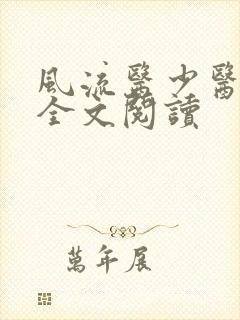 風流醫少醫
全文閱讀
萬年展